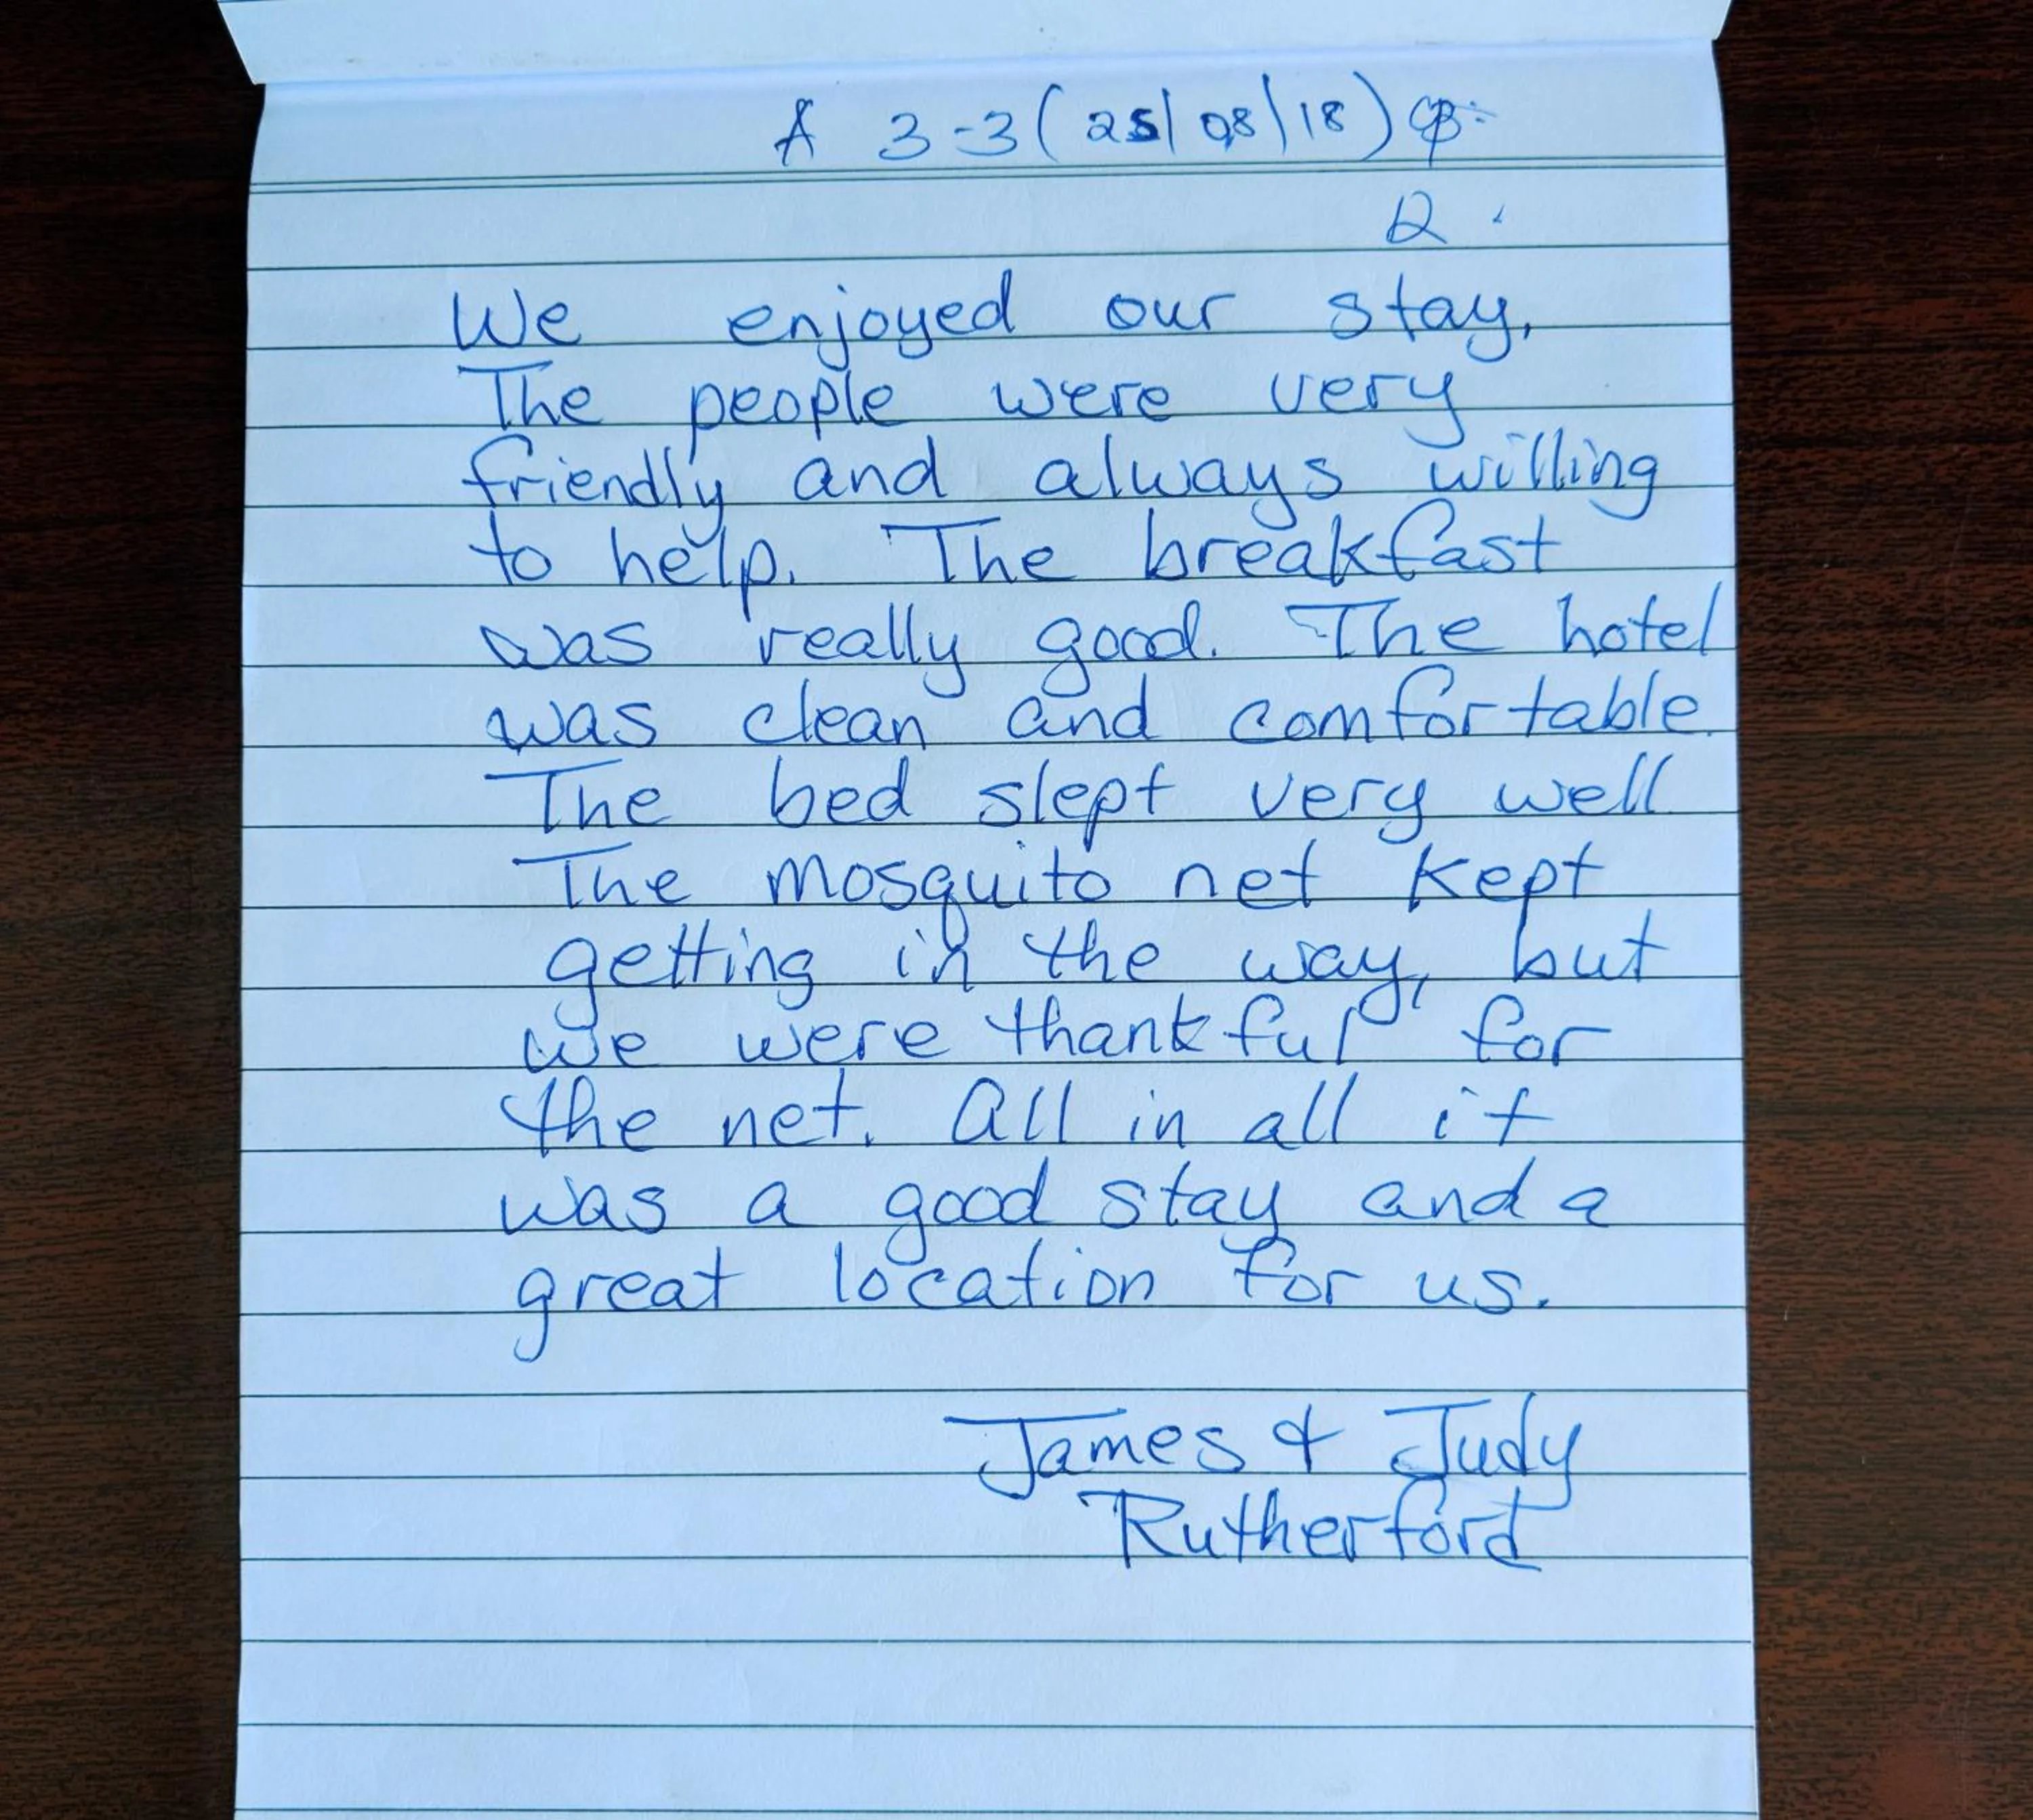 A 3-3 (25/08/18)
2.
We enjoyed our stay.
The people were very
friendly and always willing
to help. The breakfast
was really good. The hotel
was clean and comfortable.
The bed slept very well
The mosquito net kept
getting in the way, but
we were thankful for
the net. All in all it
was a good stay and a
great location for us.
James & Judy
Rutherford